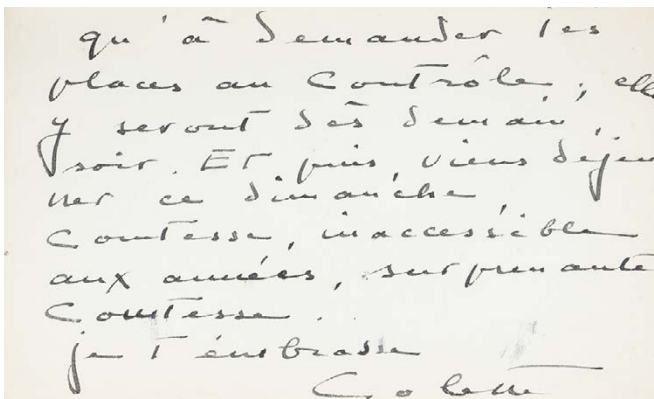 qu'à demander les
places au Contrôle ; elles
y seront dès demain
soir. Et puis, viens déjeu
ner ce dimanche,
Comtesse, inaccessible
aux années, surprenante
Comtesse.
je t'embrasse
Colette